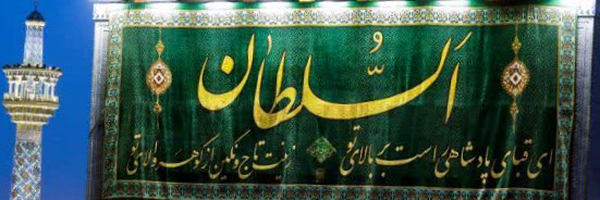 اَلسُّلطان
ای قبای پادشاهی راست بر بالای تو زینت تاج و نگین از گوهر والای تو